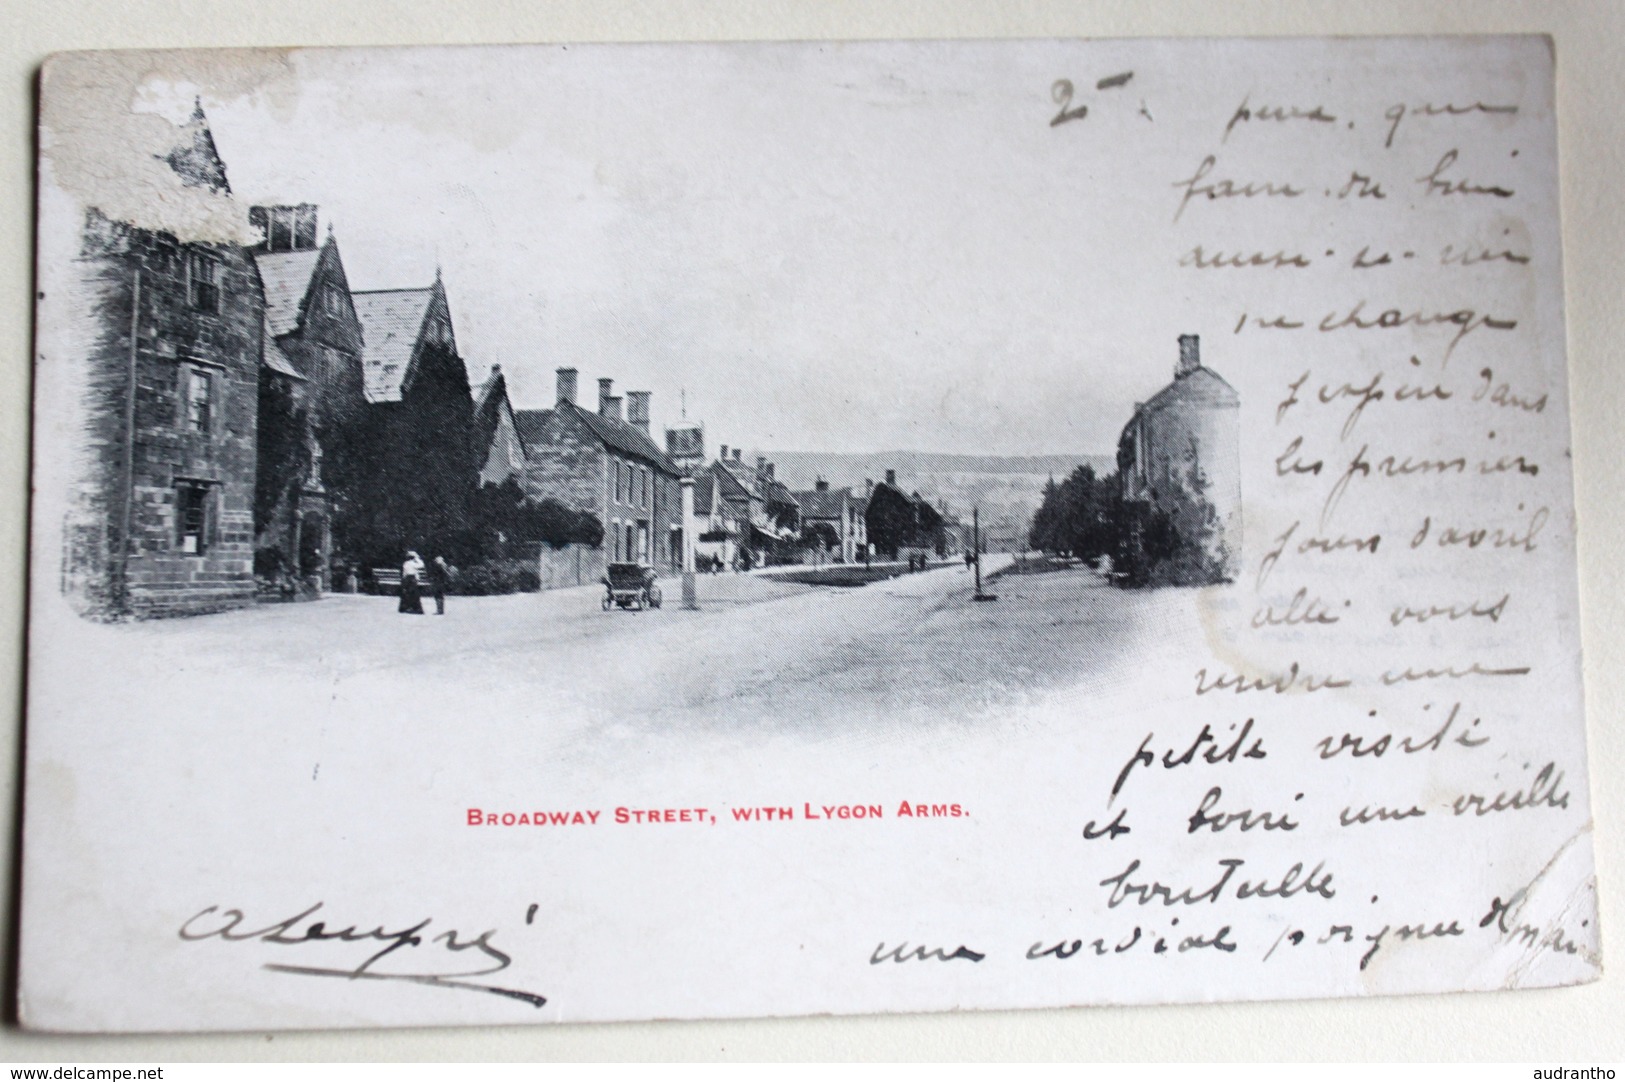 2
que
faire du bien
aussi si rien
ne change
j'espère dans
les premiers
jours d'avril
allé vous
rendre une
petite visite
et boire une vieille
bouteille.
une cordial poignée de main
BROADWAY STREET, WITH LYGON ARMS.
delcampe.net
audrantho